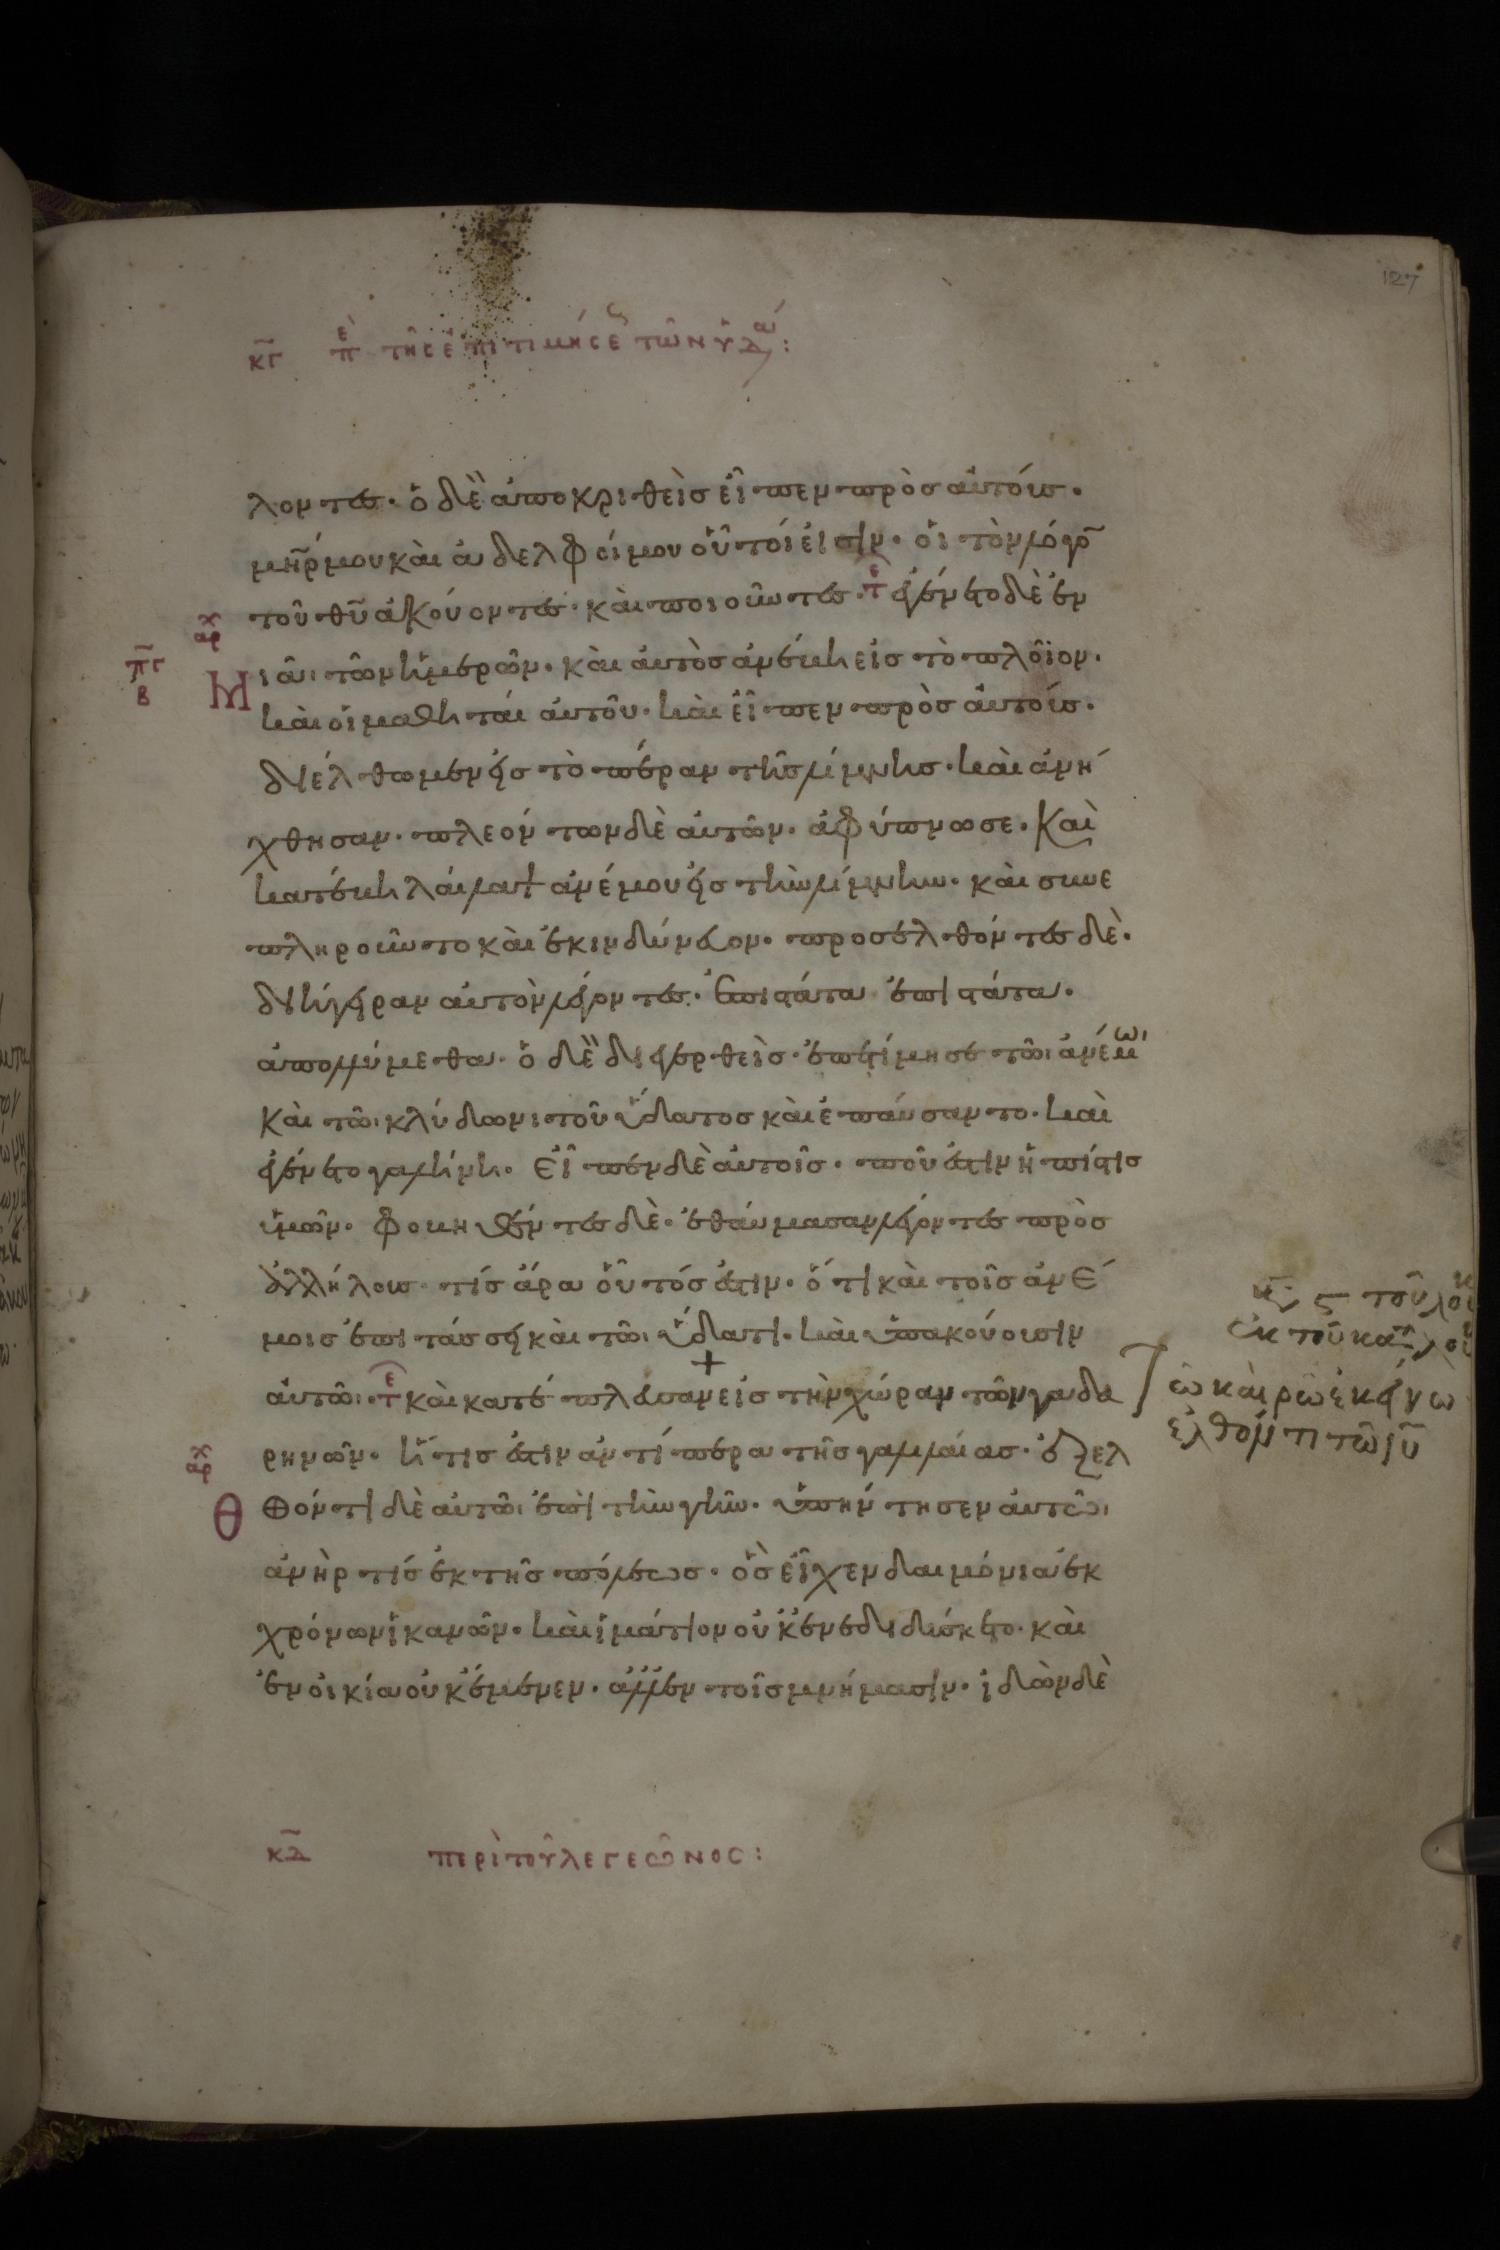 127
κγ πε τῆς ἐπιτιμήσε τῶν ὑδα :
λοντες· ὁ δὲ ἀποκριθεὶσ εἶπεν πρὸσ αὐτούσ·
μηρ μου καὶ ἀδελφοί μου οὗτοί εἰσιν· οἱ τὸν λόγον
τοῦ θυ ἀκούοντεσ· καὶ ποιοῦντεσ· τε ἐγένετο δὲ ἐν
αρχ
πγ
β
Μιᾶι τῶν ἡμερῶν· καὶ αὐτὸσ ἀνέβη εἰσ τὸ πλοῖον·
καὶ οἱ μαθηταὶ αὐτοῦ· καὶ εἶπεν πρὸσ αὐτούσ·
διέλθωμεν εἰσ τὸ πέραν τῆσ λίμνησ· καὶ ἀνή
χθησαν· πλεόντων δὲ αὐτῶν· ἀφύπνωσε· Καὶ
κατέβη λαίλαψ ἀνέμου εἰσ τὴν λίμνην· καὶ συνε
πληροῦντο καὶ ἐκινδύνευον· προσελθόντεσ δὲ·
διήγειραν αὐτὸν λέγοντεσ· ἐπιστάτα ἐπιστάτα·
ἀπολλύμεθα· ὁ δὲ διεγερθεὶσ· ἐπετίμησε τῶι ἀνέμωι
καὶ τῶι κλύδωνι τοῦ ὕδατοσ καὶ ἐπαύσαντο· καὶ
ἐγένετο γαλήνη· Εἶπεν δὲ αὐτοῖσ· ποῦ ἐστιν ἡ πίστισ
ὑμῶν· φοβηθέντεσ δὲ· ἐθαύμασαν λέγοντεσ πρὸσ
ἀλλήλουσ τίσ ἄρα οὗτόσ ἐστιν· ὅτι καὶ τοῖσ ἀνέ
μοισ ἐπιτάσσει καὶ τῶι ὕδατι· καὶ ὑπακούουσιν
αὐτῶι· τε καὶ κατέπλευσαν εἰσ τὴν χώραν τῶν γαδα
ρηνῶν· ἥτισ ἐστιν ἀντίπερα τῆσ γαλιλαίασ· ἐξελ
αρχ
Θ θόντι δὲ αὐτῶι ἐπὶ τὴν γῆν· ὑπήντησεν αὐτῶι
ἀνήρ τισ ἐκ τῆσ πόλεωσ· ὃσ εἶχεν δαιμόνια ἐκ
χρόνων ἱκανῶν· καὶ ἱμάτιον οὐκ ἐνεδιδύσκετο· καὶ
ἐν οἰκία οὐκ ἔμενεν· ἀλλ ἐν τοῖσ μνήμασιν· ἰδὼν δὲ
τοῦ λου
ἐκ τοῦ κατ λου
τω καιρω εκείνω
ἐλθόντι τῶ ιυ
κδ περὶ τοῦ λεγεῶνος :